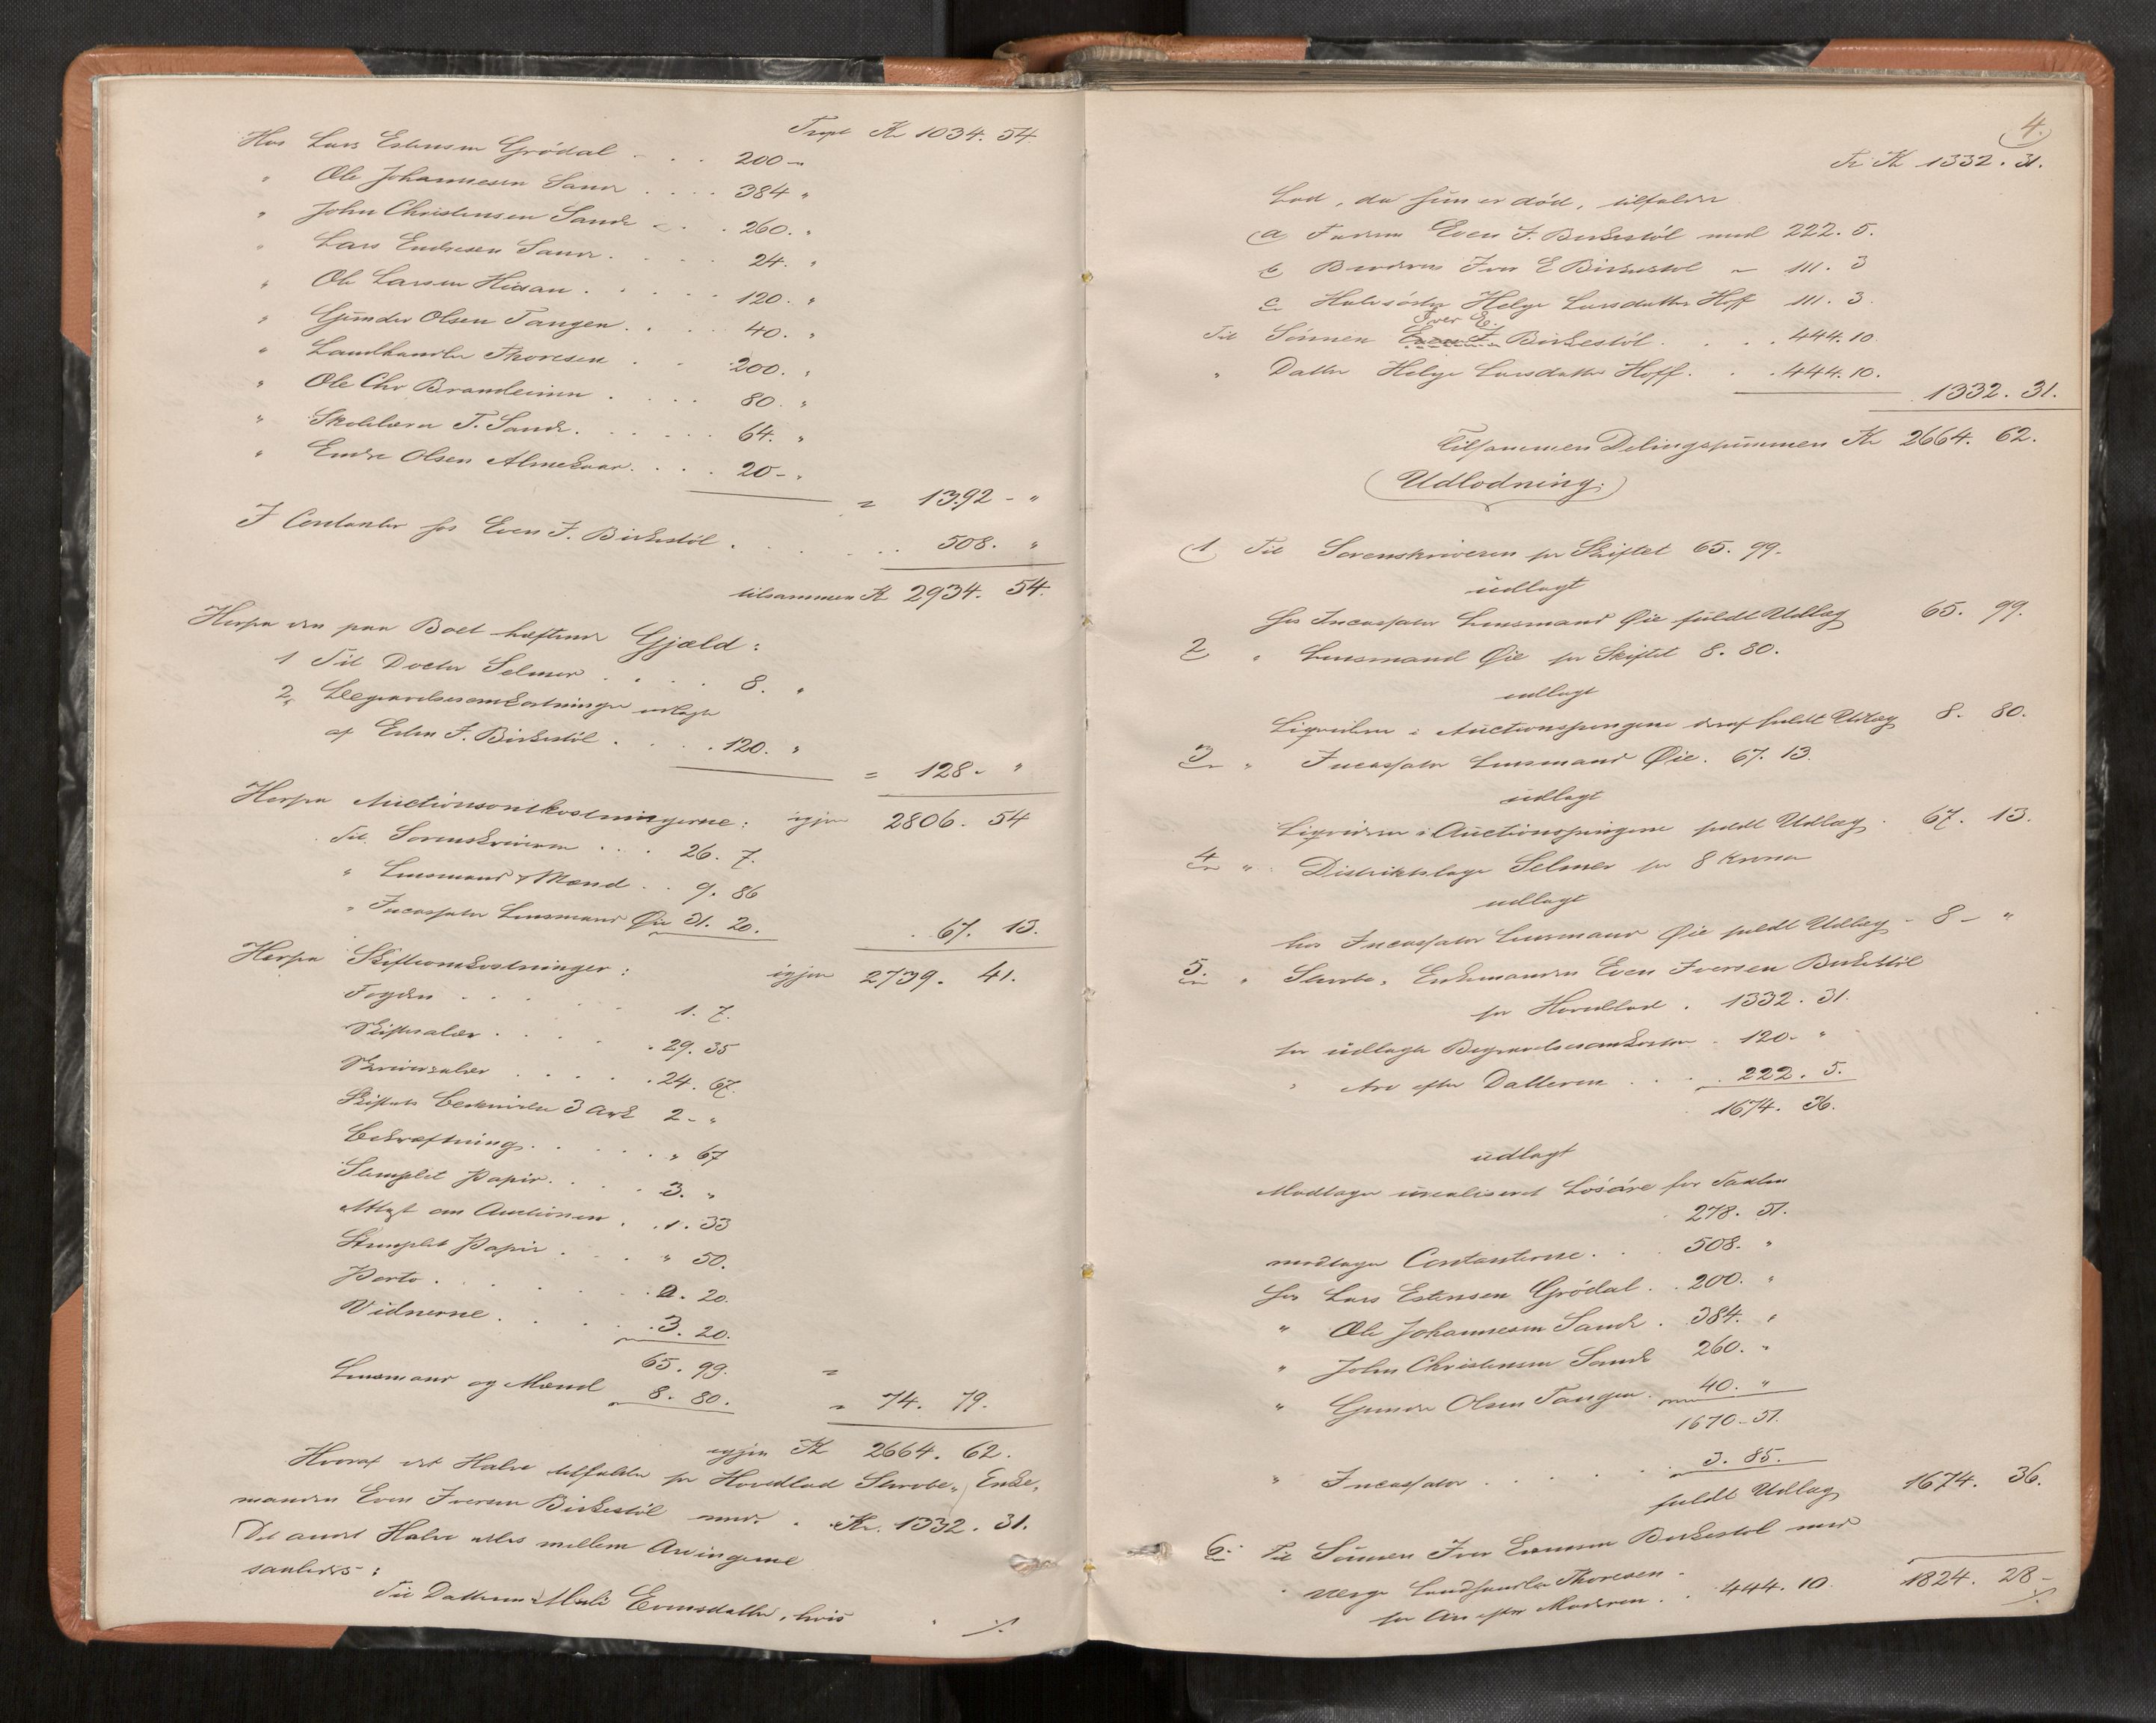 Trspt Kr 1034. 54.
Hos Lars Estensen Grödal . . . 200 -
" Ole Johannesen Sande . . . . 384 "
" John Christensen Sande . . . 260. "
" Lars Endresen Sande . . . . 24. "
" Ole Larsen . . . . . 120. "
" Gunder Olsen Tangen . . . 40. "
" Landhandler Thoresen . . . 200. "
" Ole Chr. . . . . 80. "
" Skolelærer T. Sande . . . . . 64. "
" Endre Olsen . . . . 20 - "
= 1392 - "
I Contanter hos Even I. Birkestöl . . . . . . 508. "
tilsammen Kr 2934. 54.
Herfra den paa Boet hæftende Gjæld :
1 Til Doctor Selmer . . . . 8. "
2 Begravelsesomkostninger udlagt
af Even I. Birkestöl . . . . 120. "
= 128 - "
Herfra Auctionsomkostningerne : igjen 2806. 54
Til Sorenskriveren . . . 26. 7.
" Lensmand & Mænd . . 9. 86
" Incassator Lensmand Øie 31. 20.
. 67. 13.
Herfra Skifteomkostninger : igjen 2739. 41.
Fogden . . . . . . 1. 7.
Skiftesalær . . . . . 29. 35
Skriversalær . . . . . 24. 67.
Skiftets Beskrivelse 3 Ark 2 - "
Bekræftning . . . . . " 67
Stemplet Papir . . . . 3. "
Attest om Auctionen . . 1. 33
Stemplet Papir . . . . " 50.
Porto . . . . . . . 20.
Vidnerne . . . . . 3. 20.
65. 99. =
Lensmand og Mænd 8. 80.
= 74. 79.
igjen Kr 2664. 62.
Hvoraf det Halve tilfalder for Hovedlod Stervbo-Enke-
manden Even Iversen Birkestöl med . . Kr. 1332. 31.
Det andet Halve deles mellem Arvingerne
saaledes :
Til Datteren Evensdatter, hvis . ./.
4.
Tr Kr 1332. 31.
Lod, da hun er död, tilfalder
a Faderen Even I. Birkestöl med 222. 5.
b Broderen Iver E Birkestöl " 111. 3
c Halvsöster Helge Larsdatter Hoff 111. 3.
Iver E.
Til Sönnen Even I. Birkestöl . . . . 444. 10.
" Datter Helge Larsdatter Hoff . . . 444. 10.
1332. 31.
Tilsammen Delingssummen Kr 2664. 62.
Udlodning.
1 Til Sorenskriveren for Skiftet 65. 99.
udlagt
hos Incassator Lensmand Øie fuldt Udlæg 65. 99.
2 " Lensmand Øie for Skiftet 8. 80.
udlagt
Liqvideres i Auctionspengene deraf fuldt Udlæg 8. 80.
3 " Incassator Lensmand Øie. 67. 13.
udlagt
Liqvideres i Auctionspengene fuldt Udlæg . 67. 13.
4 " Distriktslæge Selmer for 8 Kroner
udlagt
hos Incassator Lensmand Øie fuldt Udlæg - 8 - "
5. " Stervbo-Enkemanden Even Iversen Birkestöl
for Hovedlod . 1332. 31.
for udlagte Begravelsesomkostn . 120 - "
" Arv efter Datteren . . . . 222. 5.
1674. 36.
udlagt
Modtager urealiseret Lösöre for Taxten
278. 51.
modtager Contanterne . . . 508. "
hos Lars Estensen Grödal . . 200. "
" Ole Johannesen Sande . 384. "
" John Christensen Sande 260. "
" Gunder Olsen Tangen . 40. "
1670 - 51.
" Incassator . . . . . . 3. 85.
fuldt Udlæg 1674. 36.
6. Til Sönnen Iver Evensen Birkestöl med
Værge Landhandler Thoresen
for Arv efter Moderen . . 444. 10. 1824. 28 -
./.